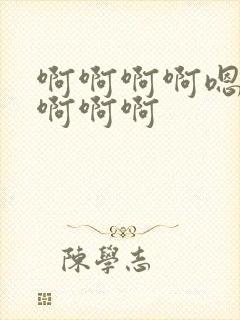 啊啊啊啊嗯
啊啊啊
陳學志